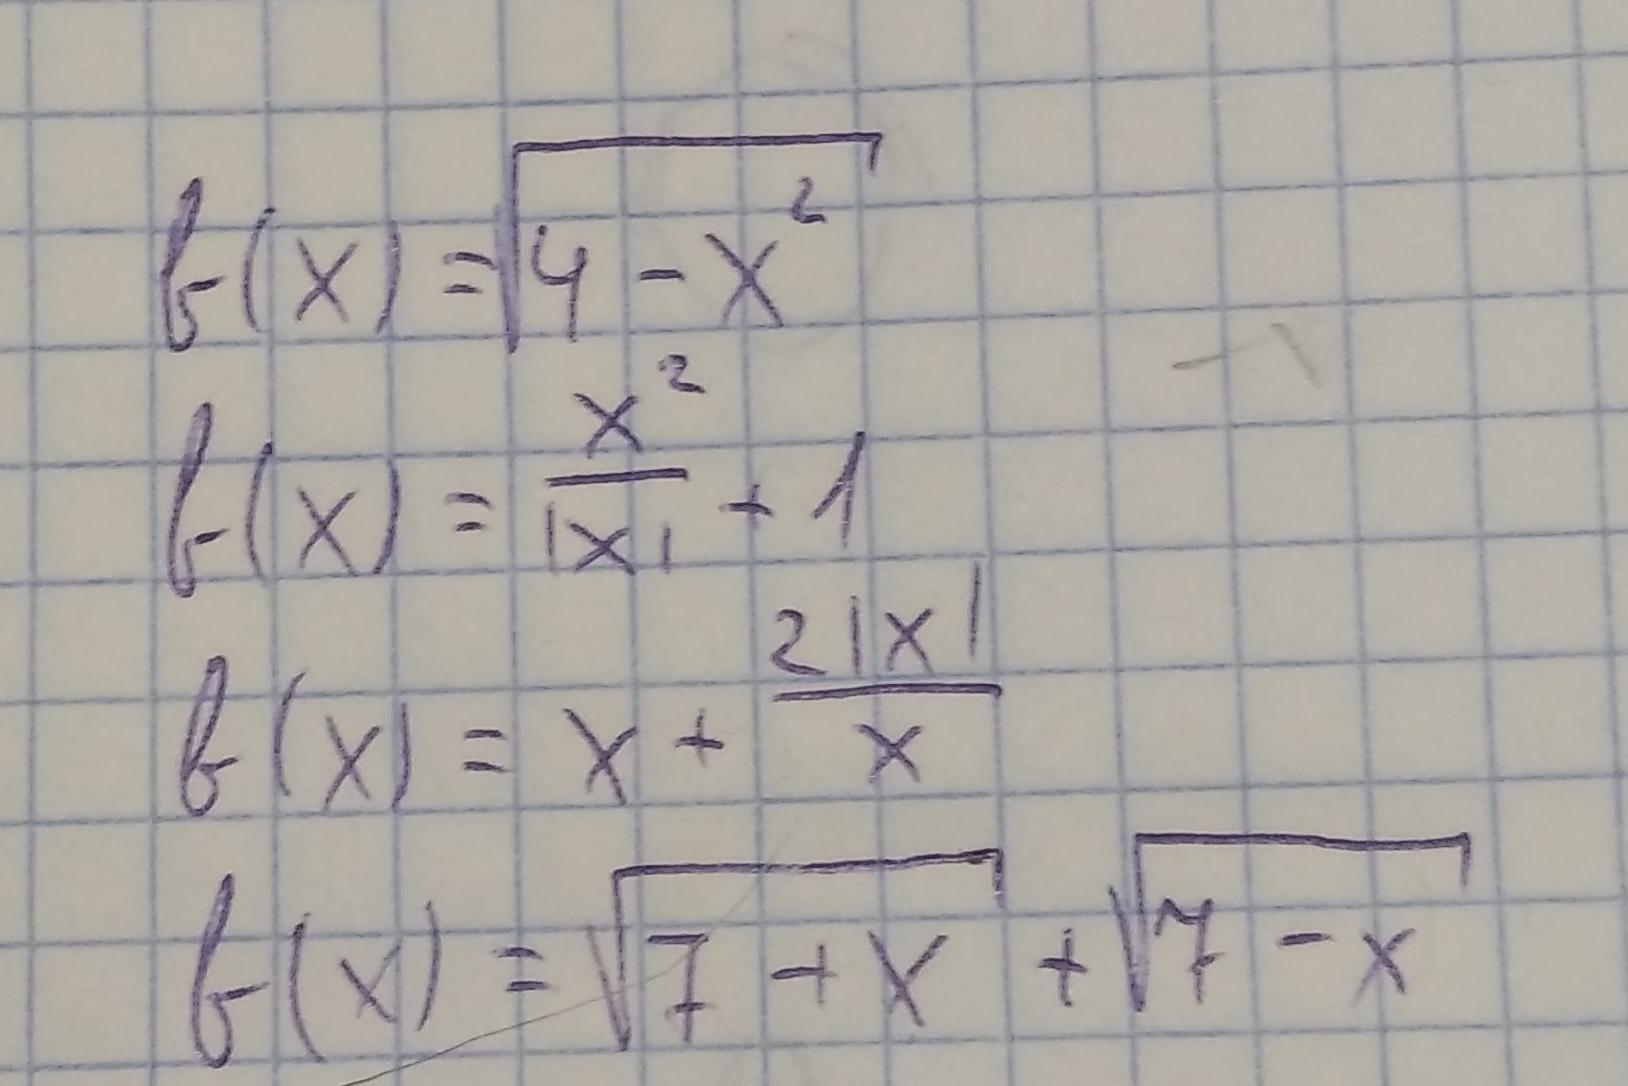 f(x) = √(4 - x²)
f(x) = x²/|x| + 1
f(x) = x + 2|x|/x
f(x) = √(7 + x) + √(7 - x)